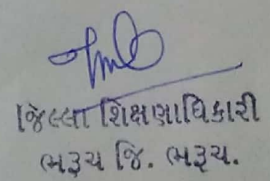 જિલ્લા શિક્ષણાધિકારી
ભરૂચ જિ. ભરૂચ.